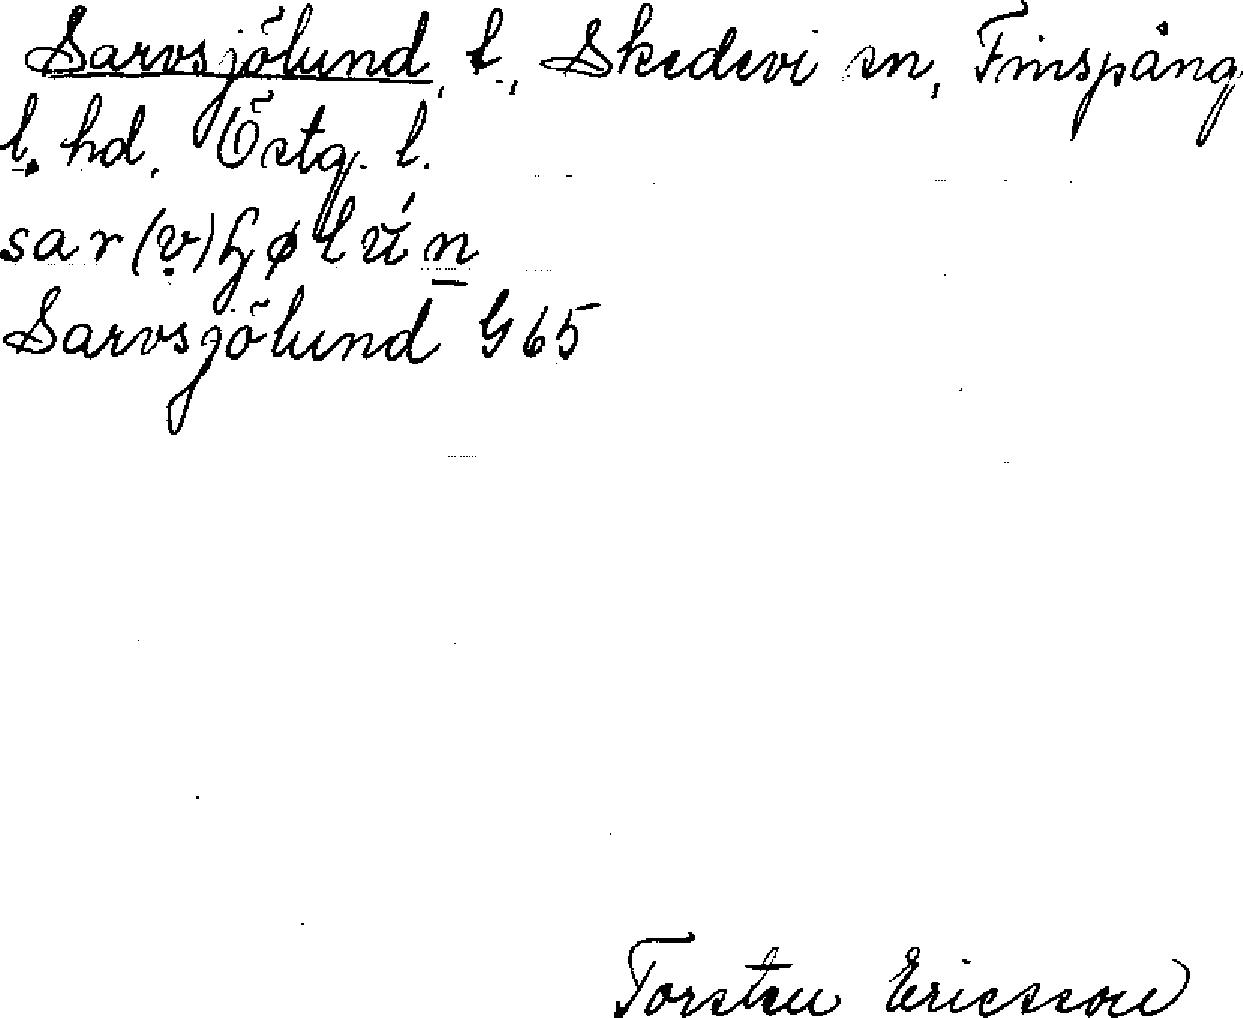 Sarvsjölund, t., Skedevi sn, Finspång
l. hd. Östg. l.
sar(v)ɧølún
Sarvsjölund G65
Torsten Ericsson